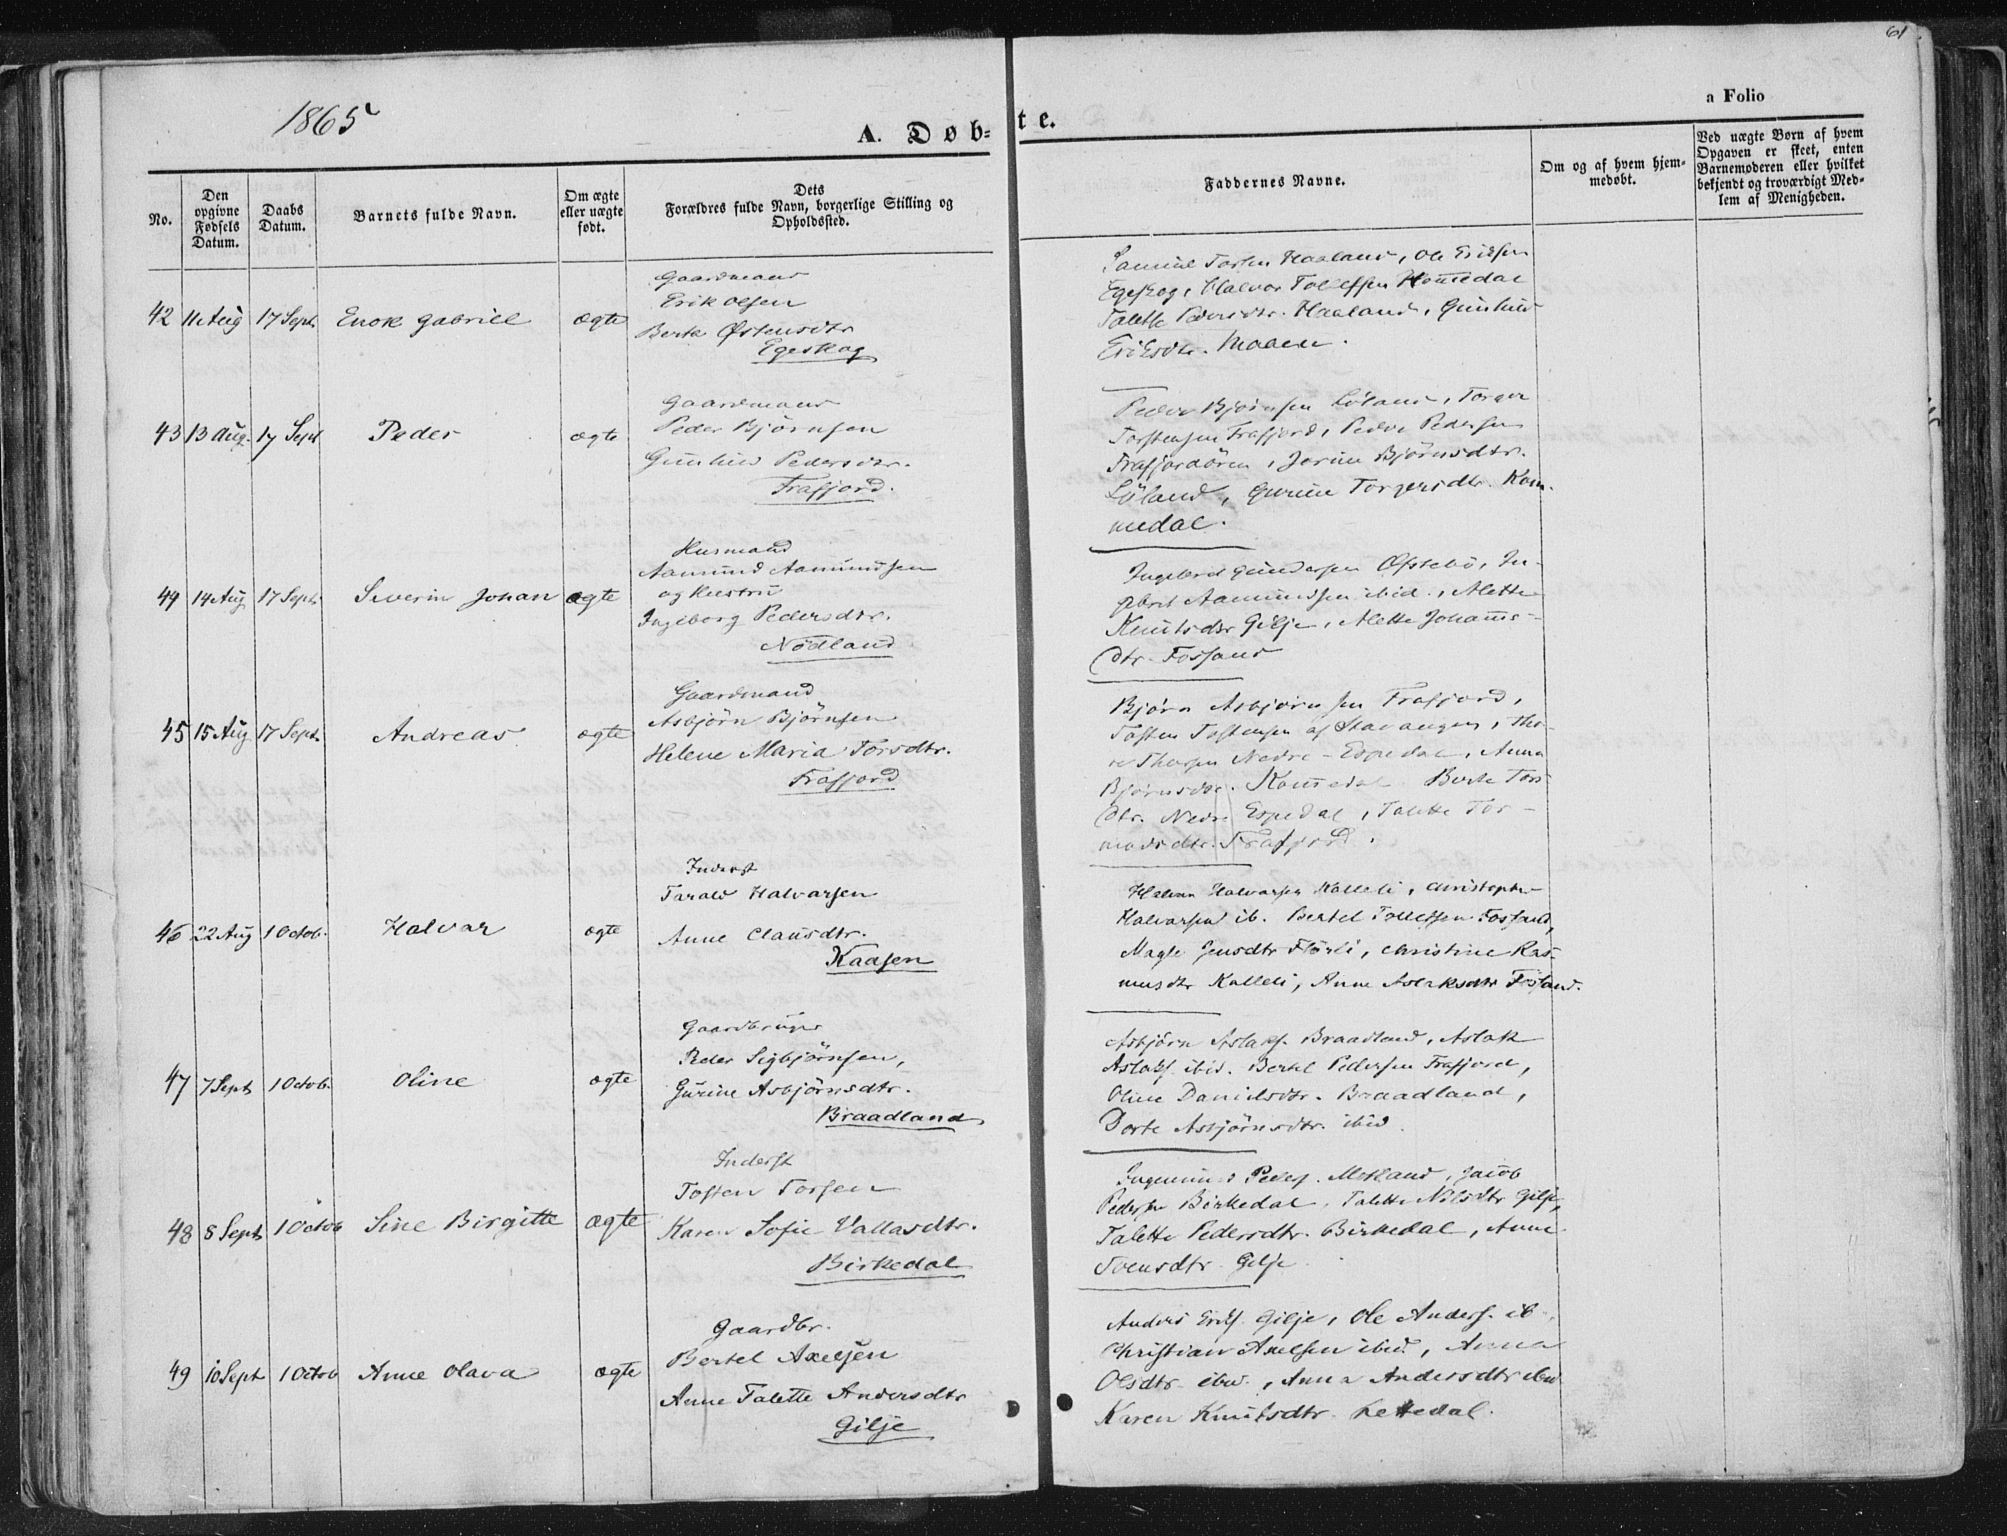 61
1865
a Folio
A. Døb-
te.
No.
Den opgivne Fødsels Datum.
Daabs Datum.
Barnets fulde Navn.
Om ægte eller uægte født.
Dets Forældres fulde Navn, borgerlige Stilling og Opholdssted.
Faddernes Navne.
Om og af hvem hjem-medøbt.
Ved uægte Børn af hvem Opgaven er skeet, enten Barnemoderen eller hvilket bekjendt og troværdigt Med-lem af Menigheden.
42 11 Aug 17 Sept. Enok Gabriel ægte
Gaardmand
Erik Olsen
Berte Østensdtr
Egeskog
Samuel Haaland, Ole Eriksen
Egeskog, Halvor Tollefsen Hommedal
Talette Pedersdtr. Haaland, Gunhild
Eriksdtr. Maaen.
43 13 Aug. 17 Sept Peder ægte
Gaardmand
Peder Bjørnsen
Gunhild Pedersdtr.
Frafjord.
Peder Bjørnsen Løland, Torger
Torstensen Frafjord, Peder Pedersen
Frafjordøren, Jorine Bjørnsdtr.
Løland, Gurine Torgersdtr. Kom-
medal.
44 14 Aug 17 Sept. Severin Johan ægte
Husmand
Aamund Aamundsen
og Hustru
Ingeborg Pedersdtr.
Nødland
Ingebret Gundersen Østebø, In-
gebrit Aamundsen ibid., Alette
Knutsdtr Gilje, Alette Johanns-
dtr. Fossand
45 15 Aug 17 Sept. Andreas ægte
Gaardmand
Asbjørn Bjørnsen
Helene Maria Torsdtr.
Frafjord
Bjørn Asbjørnsen Frafjord,
Tosten Tostensen af Stavanger, Tho-
re Thorsen Nedre-Espedal, Anna
Bjørnsdtr. Kommedal Berte Tors-
dtr. Nedre Espedal, Talette Tor-
modsdtr. Frafjord.
46 22 Aug 1 Octob. Halvar ægte
Inderst
Tarald Halvarsen
Anne Clausdtr.
Kaasen
Halvor Halvarsen Kalleli, Christopher
Halvarsen ib. Bertel Tollefsen Fossand,
Magle Jensdtr Flørli, Christine Ras-
musdtr Kalleli, Anne Fossand.
47 7 Sept 1 Octob. Oline ægte
Gaardbruger
Peder Sigbjørnsen,
Gurine Asbjørnsdtr.
Braadland
Asbjørn Aslaks. Braadland, Aslak
Aslaks. ibid. Bertel Pedersen Frafjord,
Oline Danielsdtr. Braadland,
Dorte Asbjørnsdtr. ibid.
48 8 Sept 1 Octob Sine Birgitte ægte
Inderst
Tosten Torsen
Karen Sofie Vallasdtr.
Birkedal
Ingemund Peders. Mekland, Jacob
Pedersen Birkedal, Talette Nilsdtr Gilje,
Talette Pedersdtr. Birkedal, Anne
Svensdtr. Gilje
49 10 Sept 1 Octob Anne Olava ægte
Gaardbr.
Bertel Axelsen
Anne Talette Andersdtr
Gilje
Anders Eriks. Gilje, Ole Anders. ib.
Christian Axelsen ibid, Anna
Olsdtr. ibid., Anna Andersdtr ibid
Karen Knutsdtr. Lettedal.